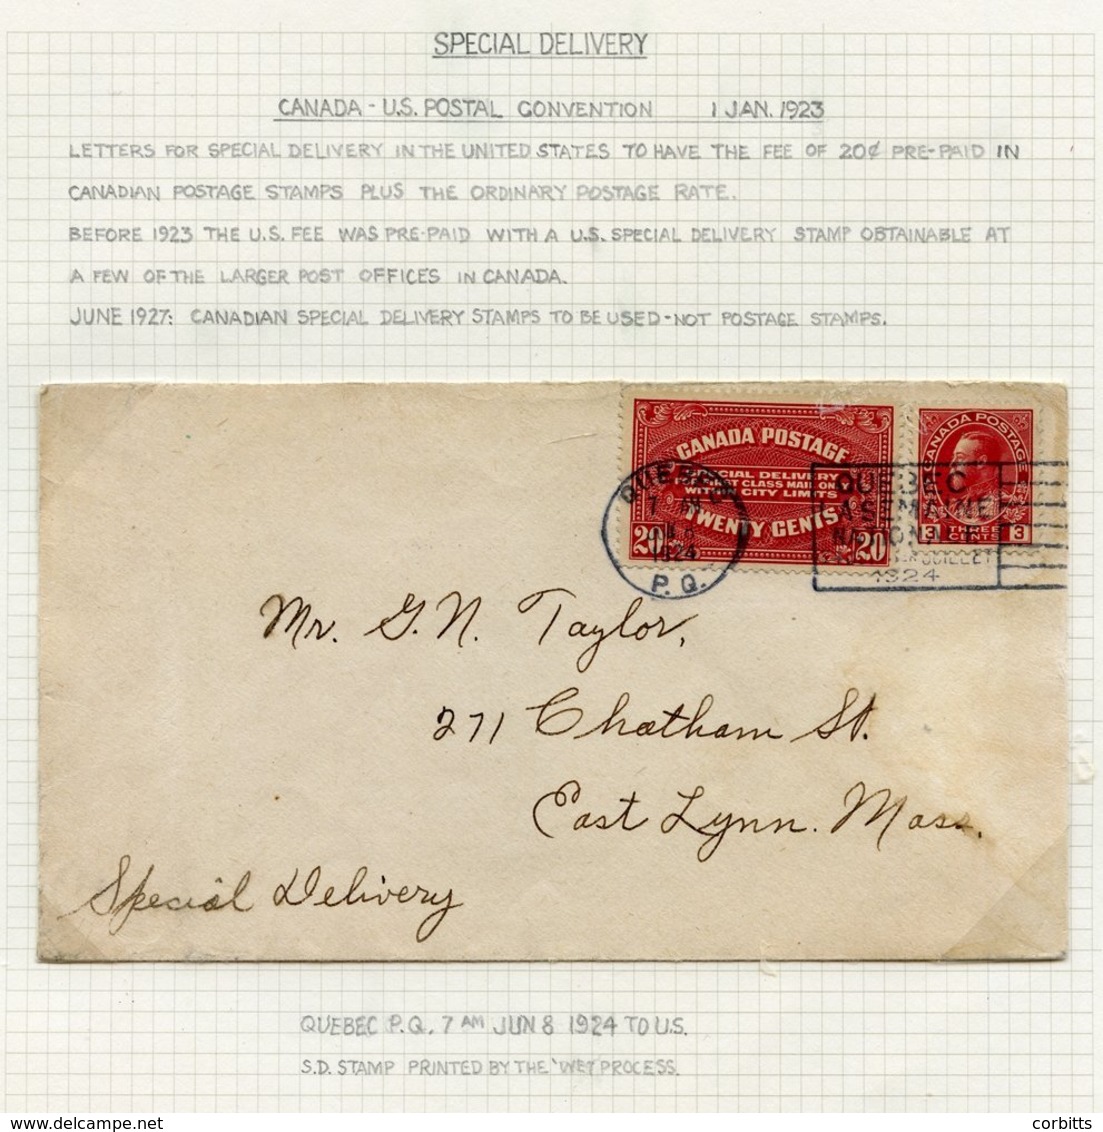 SPECIAL DELIVERY
CANADA - U.S. POSTAL CONVENTION 1 JAN. 1923
LETTERS FOR SPECIAL DELIVERY IN THE UNITED STATES TO HAVE THE FEE OF 20¢ PRE-PAID IN
CANADIAN POSTAGE STAMPS PLUS THE ORDINARY POSTAGE RATE.
BEFORE 1923 THE U.S. FEE WAS PRE-PAID WITH A U.S. SPECIAL DELIVERY STAMP OBTAINABLE AT
A FEW OF THE LARGER POST OFFICES IN CANADA.
JUNE 1927: CANADIAN SPECIAL DELIVERY STAMPS TO BE USED - NOT POSTAGE STAMPS.
CANADA POSTAGE
SPECIAL DELIVERY
CLASS MAIL ONLY
CITY LIMITS
TWENTY CENTS
20 20
CANADA POSTAGE
3 THREE CENTS 3
QUEBEC
7 AM
1924
P.Q.
QUEBEC
NATIONALE
JUILLET
1924
Mr. G. N. Taylor,
271 Chatham St.
East Lynn. Mass.
Special Delivery
QUEBEC P.Q. 7 AM JUN 8 1924 TO U.S.
S.D. STAMP PRINTED BY THE 'WET' PROCESS.
corbitts